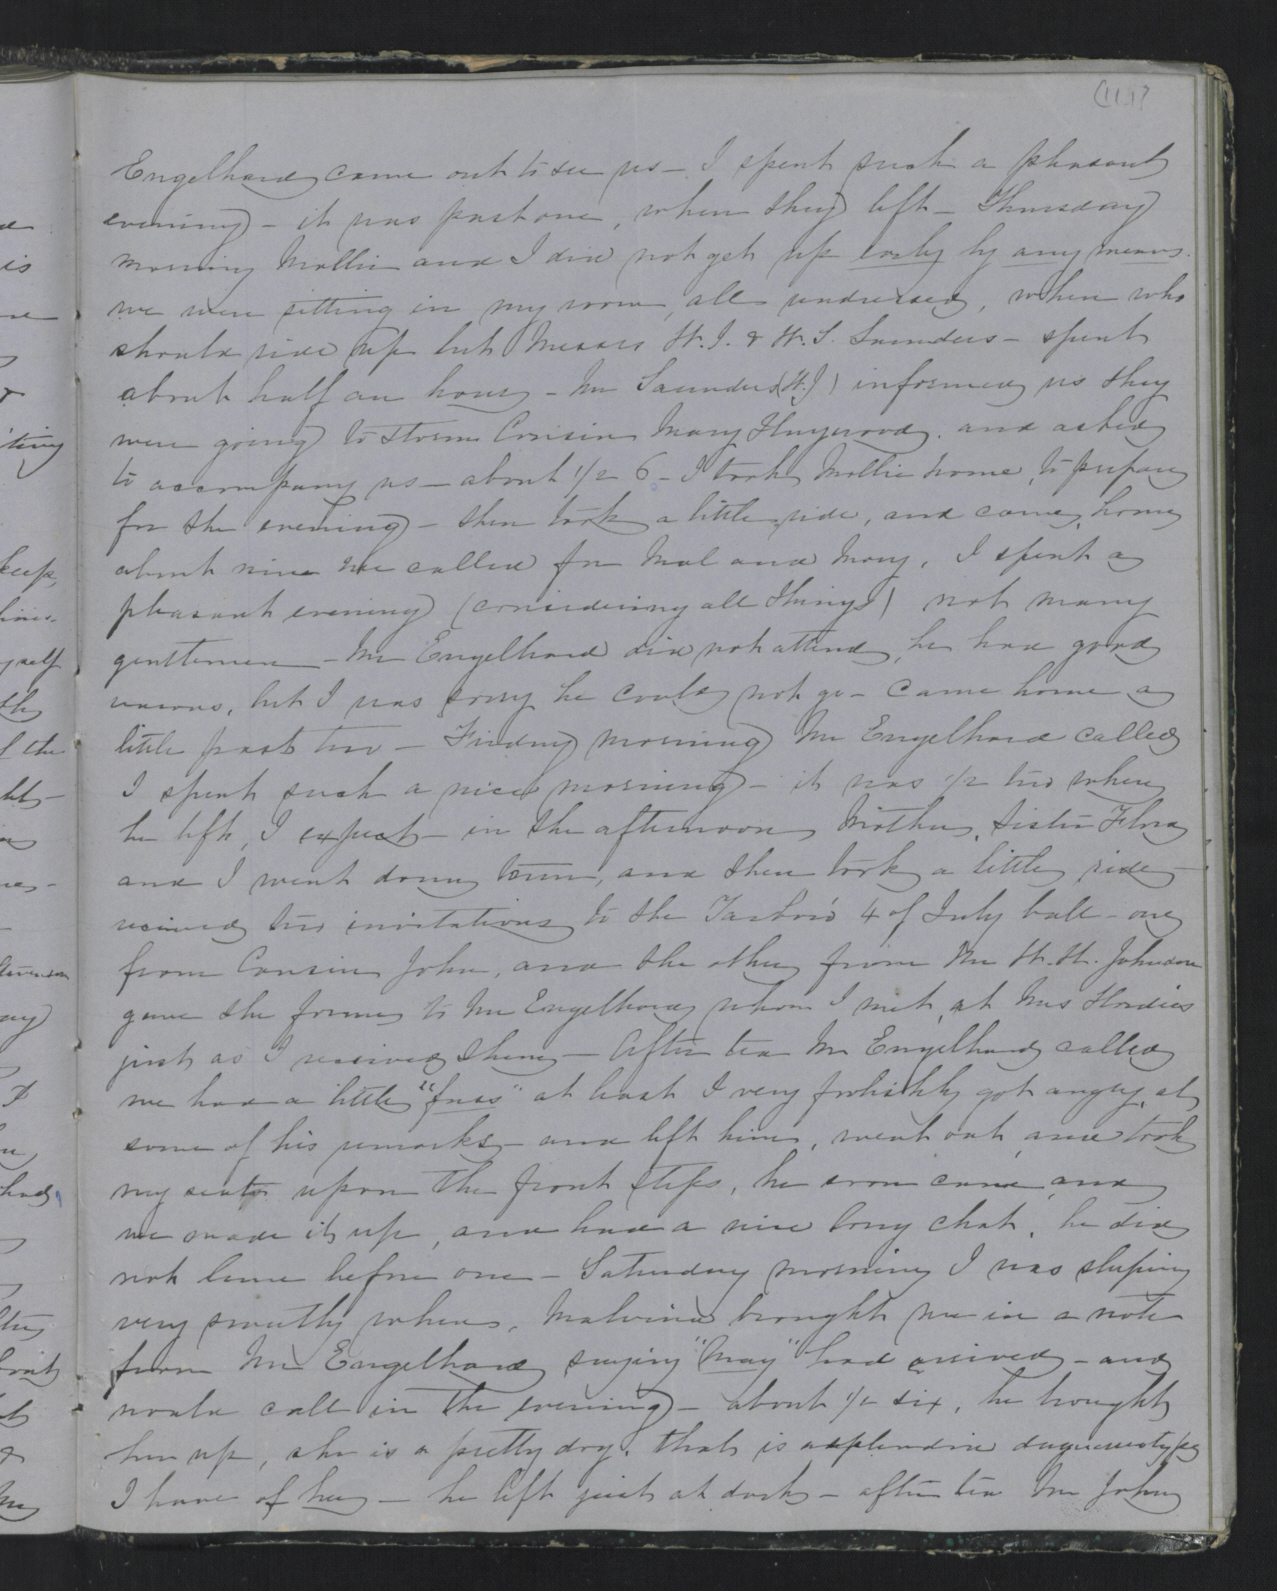 (111)
Engelhard came out to see us - I spent such a pleasant
evening - it was past one, when they left - Thursday
morning Mollie and I did not get up early by any means.
we were sitting in my room, all undressed, when who
should ride up but Messrs W. J. & W. S. Saunders - spent
about half an hour - Mr Saunders (W. J) informed us they
were going to storm Cousin Mary Haywood. and asked
to accompany us - about 1/2 6 - I took Mollie home, to prepare
for the evening - then took a little ride, and came home
about nine we called for Mal and Mary, I spent a
pleasant evening (considering all things) not many
gentlemen - Mr Engelhard did not attend, he had good
reasons, but I was sorry he could not go - came home a
little past two - Friday morning Mr Engelhard called
I spent such a nice morning - it was 1/2 two when
he left, I expect - in the afternoon, Mother, Sister Flora
and I went down town, and then took a little ride -
received two invitations to the Tarboro 4 of July ball - one
from Cousin John, and the other from Mr W. H. Johnson
gave the former to Mr Engelhard whom I met, at Mrs Hardies
just as I received them - After tea Mr Engelhard called
we had a little "fuss" at least I very foolishly got angry, at
some of his remarks - and left him, went out, and took
my seat upon the front steps, he soon came and
we made it up, and had a nice long chat, he did
not leave before one - Saturday morning I was sleeping
very sweetly when, Malvina brought me in a note
from Mr Engelhard saying "May" had arrived - and
would call in the evening - about 1/2 six, he brought
her up, she is a pretty dog, that is a splendid daguerreotype
I have of her - he left just at dark - after tea Mr John